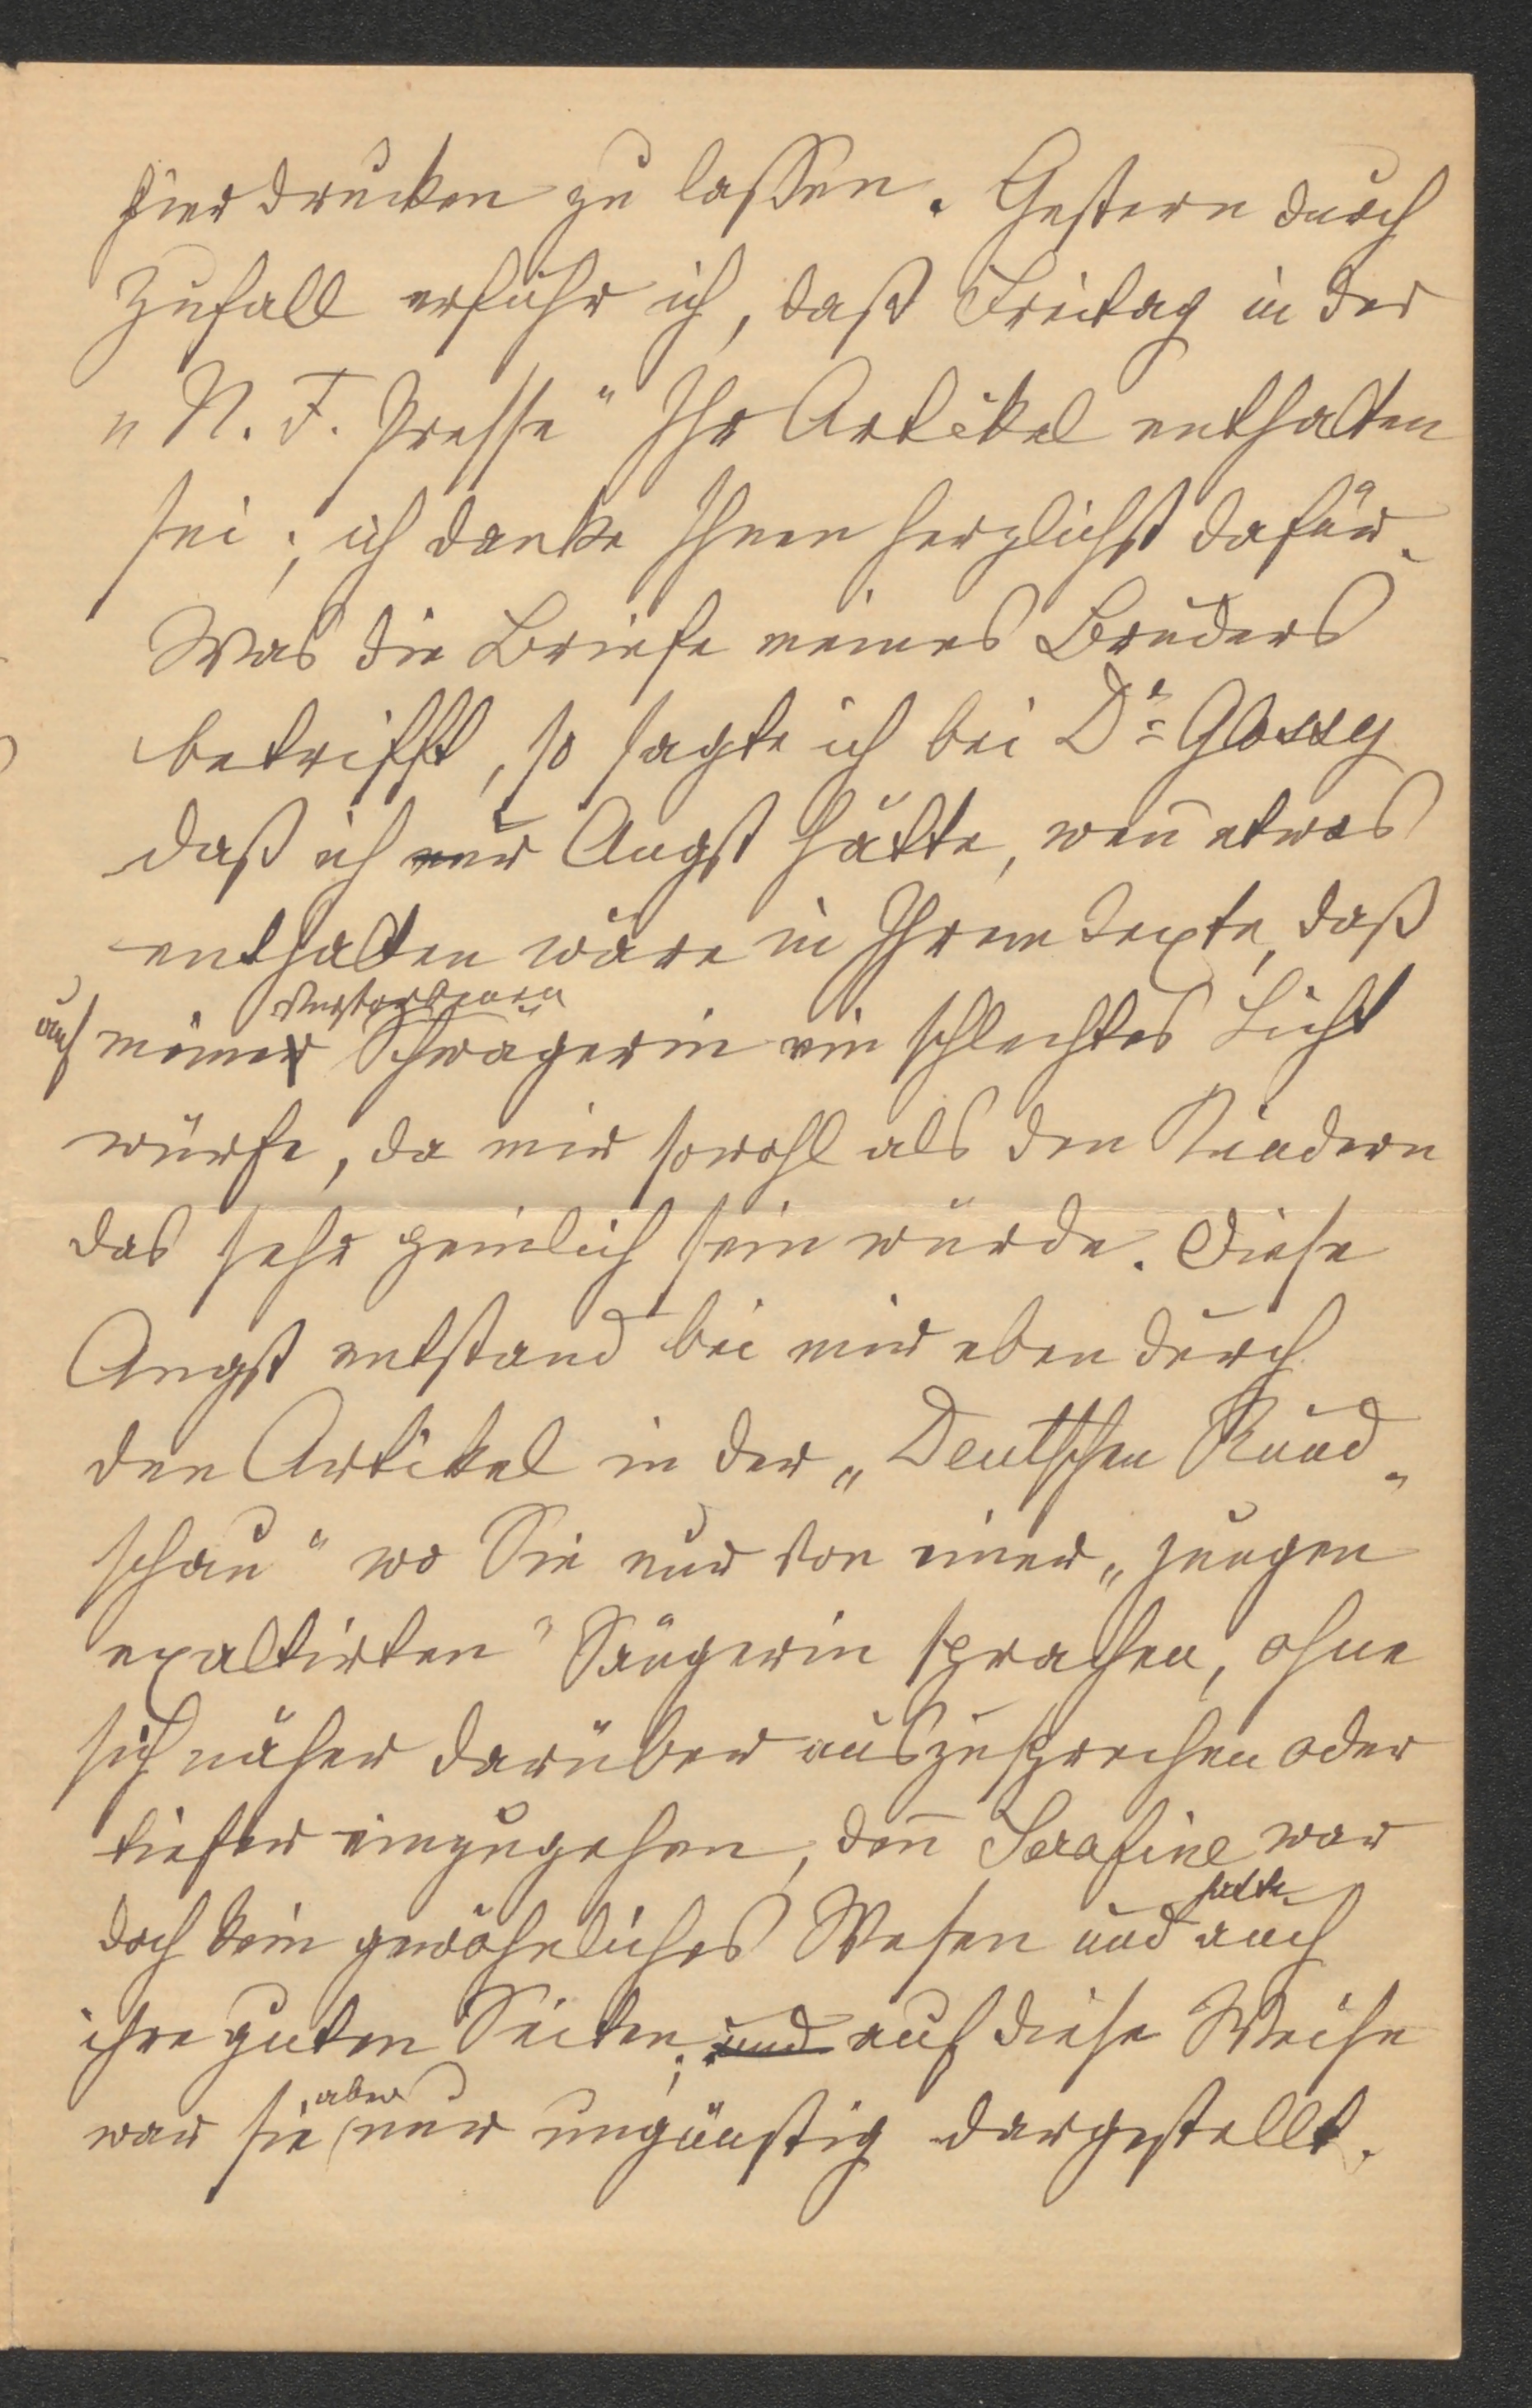 hier drucken zu lassen. Gestern durch
Zufall erfuhr ich, daß Freitag in der
„N. F. Presse“ Ihr Artikel enthalten
sei; ich danke Ihnen herzlichst dafür.
Was die Briefe meines Bruders
betrifft, so sagte ich bei Dr. Glossy
daß ich nur Angst hätte, wen̄ etwas
enthalten wäre in Ihrem Texte, daß
auf meine verstorbenen Schwägerin ein schlechtes Licht
würfe, da mir sowohl als den Kindern
das sehr peinlich sein würde. Diese
Angst entstand bei mir eben durch
den Artikel in der „Deutschen Rund-
schau“ wo Sie nur von einer „jungen
exaltirten“ Sängerin sprachen, ohne
sich näher darüber auszusprechen oder
tiefer einzugehen, den̄ Serafine war
doch kein gewöhnliches Wesen und hatte auch
ihre guten Seiten; und auf diese Weise
war sie aber nur ungünstig dargestellt.